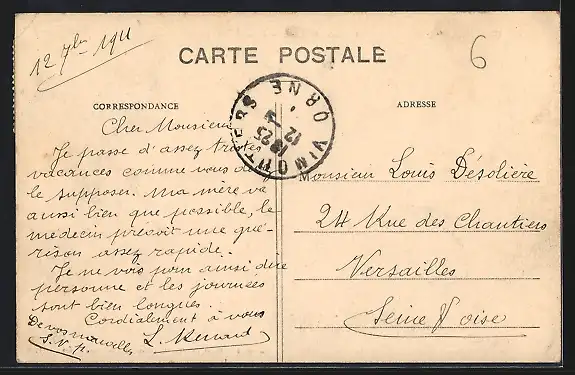 12 7bre 1911
CARTE POSTALE
6
CORRESPONDANCE
ADRESSE
VIMOUTIERS ORNE
18 25
12
Cher Monsieur
Je passe d'assez tristes
vacances comme vous de
le supposer. Ma mère va
aussi bien que possible, le
médecin prévoit une gué-
rison assez rapide.
Je ne vois pour ainsi dire
personne et les journées
sont bien longues.
Cordialement à vous
De vos nouvelles
S.V.p.
L. Menard
Monsieur Louis Désolière
24 Rue des Chantiers
Versailles
Seine & oise